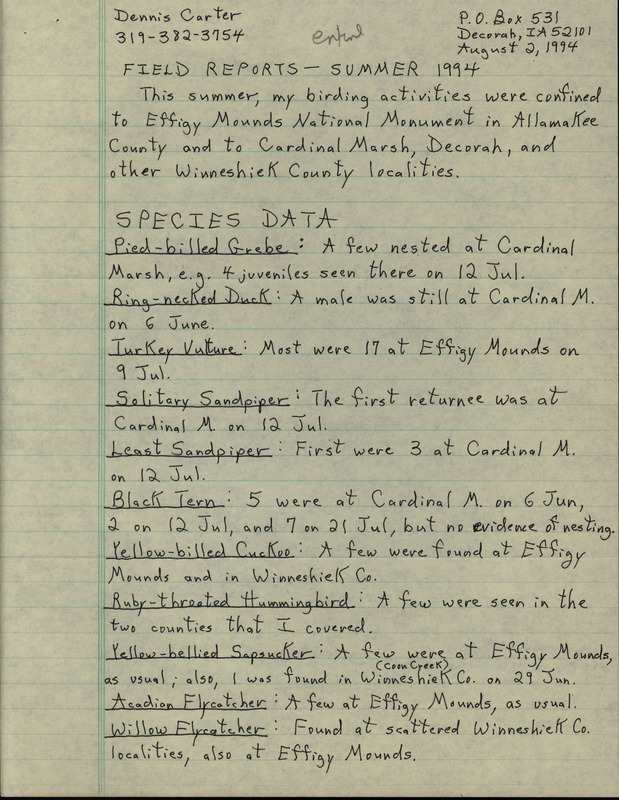 Dennis Carter
319-382-3754
P.O. Box 531
Decorah, IA 52101
August 2, 1994
FIELD REPORTS — SUMMER 1994
This summer, my birding activities were confined
to Effigy Mounds National Monument in Allamakee
County and to Cardinal Marsh, Decorah, and
other Winneshiek County localities.
SPECIES DATA
Pied-billed Grebe: A few nested at Cardinal
Marsh, e.g. 4 juveniles seen there on 12 Jul.
Ring-necked Duck: A male was still at Cardinal M.
on 6 June.
Turkey Vulture: Most were 17 at Effigy Mounds on
9 Jul.
Solitary Sandpiper: The first returnee was at
Cardinal M. on 12 Jul.
Least Sandpiper: First were 3 at Cardinal M.
on 12 Jul.
Black Tern: 5 were at Cardinal M. on 6 Jun,
2 on 12 Jul, and 7 on 21 Jul, but no evidence of nesting.
Yellow-billed Cuckoo: A few were found at Effigy
Mounds and in Winneshiek Co.
Ruby-throated Hummingbird: A few were seen in the
two counties that I covered.
Yellow-bellied Sapsucker: A few were at Effigy Mounds,
(Coon Creek)
as usual; also, 1 was found in Winneshiek Co. on 29 Jun.
Acadian Flycatcher: A few at Effigy Mounds, as usual.
Willow Flycatcher: Found at scattered Winneshiek Co.
localities, also at Effigy Mounds.